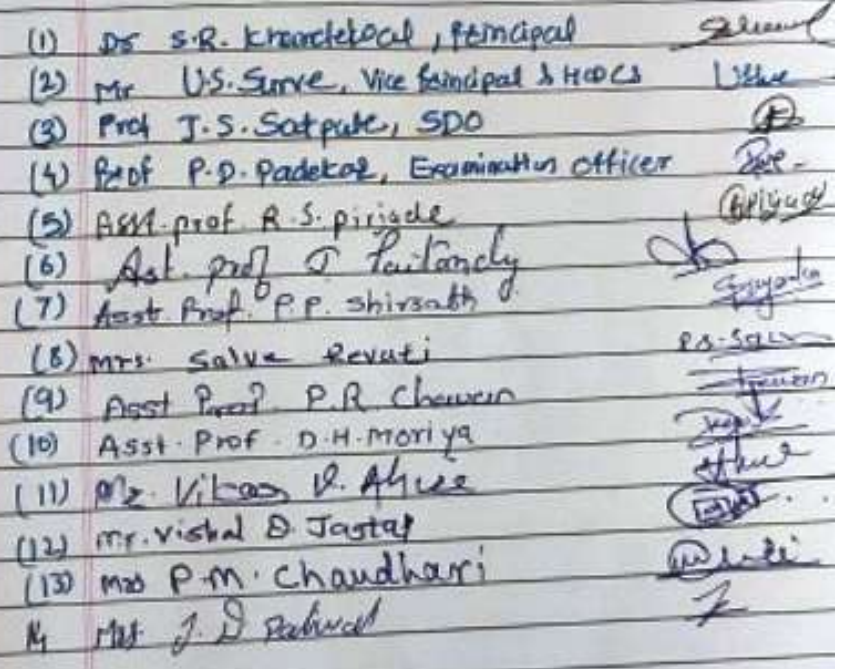 (1) Dr S.R. Khandekar, Principal
(2) Mr U.S. Surve, Vice Principal & HODCS
(3) Prof J.S. Satpute, SDO
(4) Prof P.D. Padekar, Examination officer
(5) Asst. prof. R.S. pirjade
(6) Ast. prof J
(7) Asst Prof. P.P. Shirsath
(8) Mrs. Salve Revati P.S. Salve
(9) Asst Prof. P.R Chavan
(10) Asst. Prof. D.H. Moriya
(11) Mr. Vikas V. Ahire
(12) mr. Vishal D. Jagtap
(13) Mrs P.M. Chaudhari
14 J. D